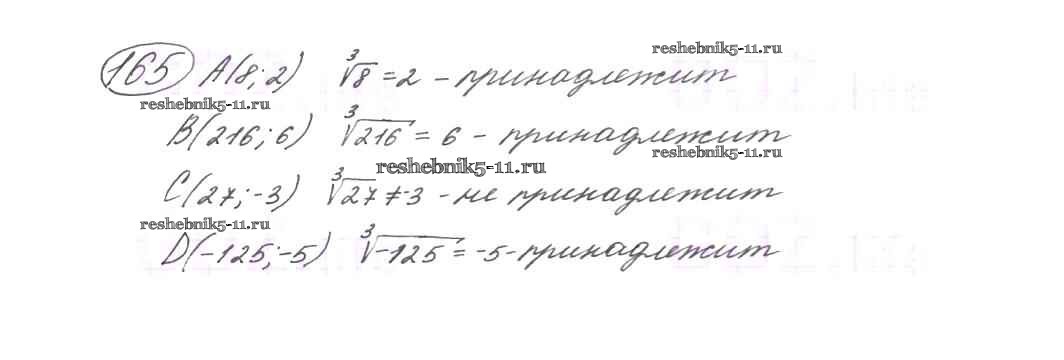 reshebnik5-11.ru
165 A(8; 2) ∛8 = 2 - принадлежит
reshebnik5-11.ru
B(216; 6) ∛216 = 6 - принадлежит
reshebnik5-11.ru
reshebnik5-11.ru
C(27; -3) ∛27 ≠ -3 - не принадлежит
reshebnik5-11.ru
D(-125; -5) ∛-125 = -5 - принадлежит